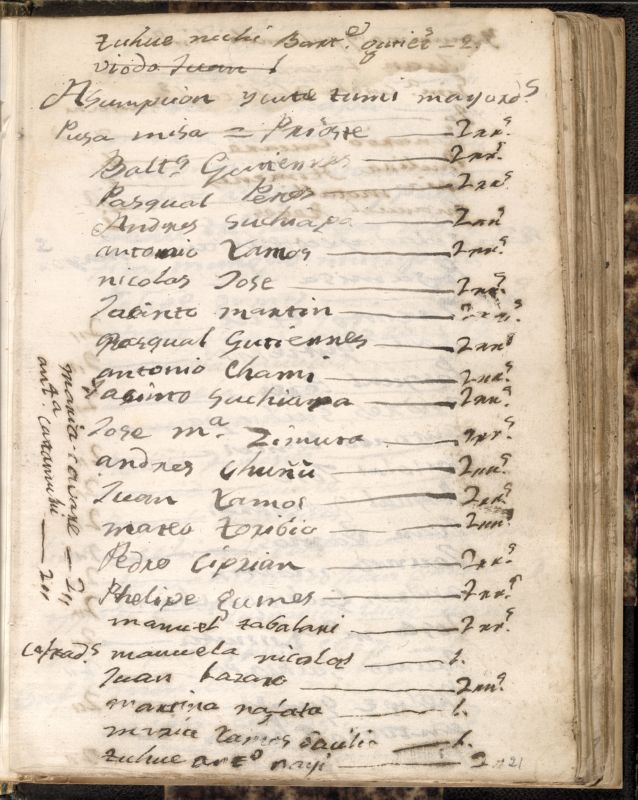 tuhue nuhi Bartᵉ. gutieˢ — 2.
viodo Juan 1
Asumpcion yiute tumi mayordˢ
Pusa misa = Prioste — 2rrˢ.
Baltª Gutierres — 2rrˢ.
Pasqual Peres — 2rrˢ
Andres Suchiapa — 2rrˢ
antonio Ramos — 2rrˢ.
nicolas Jose — 2rrˢ.
Jacinto martin — 2rrˢ.
Pasqual Gutierres — 2rrˢ
antonio Chami — 2rrˢ.
Jacinto Suchiapa — 2rrˢ.
Jose mª. Zimuta — 2rrˢ.
andres Chuñu — 2rrˢ.
Juan Ramos — 2rrˢ
mateo toribio — 2rrˢ.
Pedro Ciprian — 2rrˢ.
Phelipe gumes — 2rrˢ.
manuel tabalari — 2rrˢ.
Cofradˢ manuela nicolas — 1.
Juan Lazaro — 2rrˢ.
martina — 1.
maria Ramos — 1.
tuhue artº nayi — 2
maria — 2rr
antª — 2rr